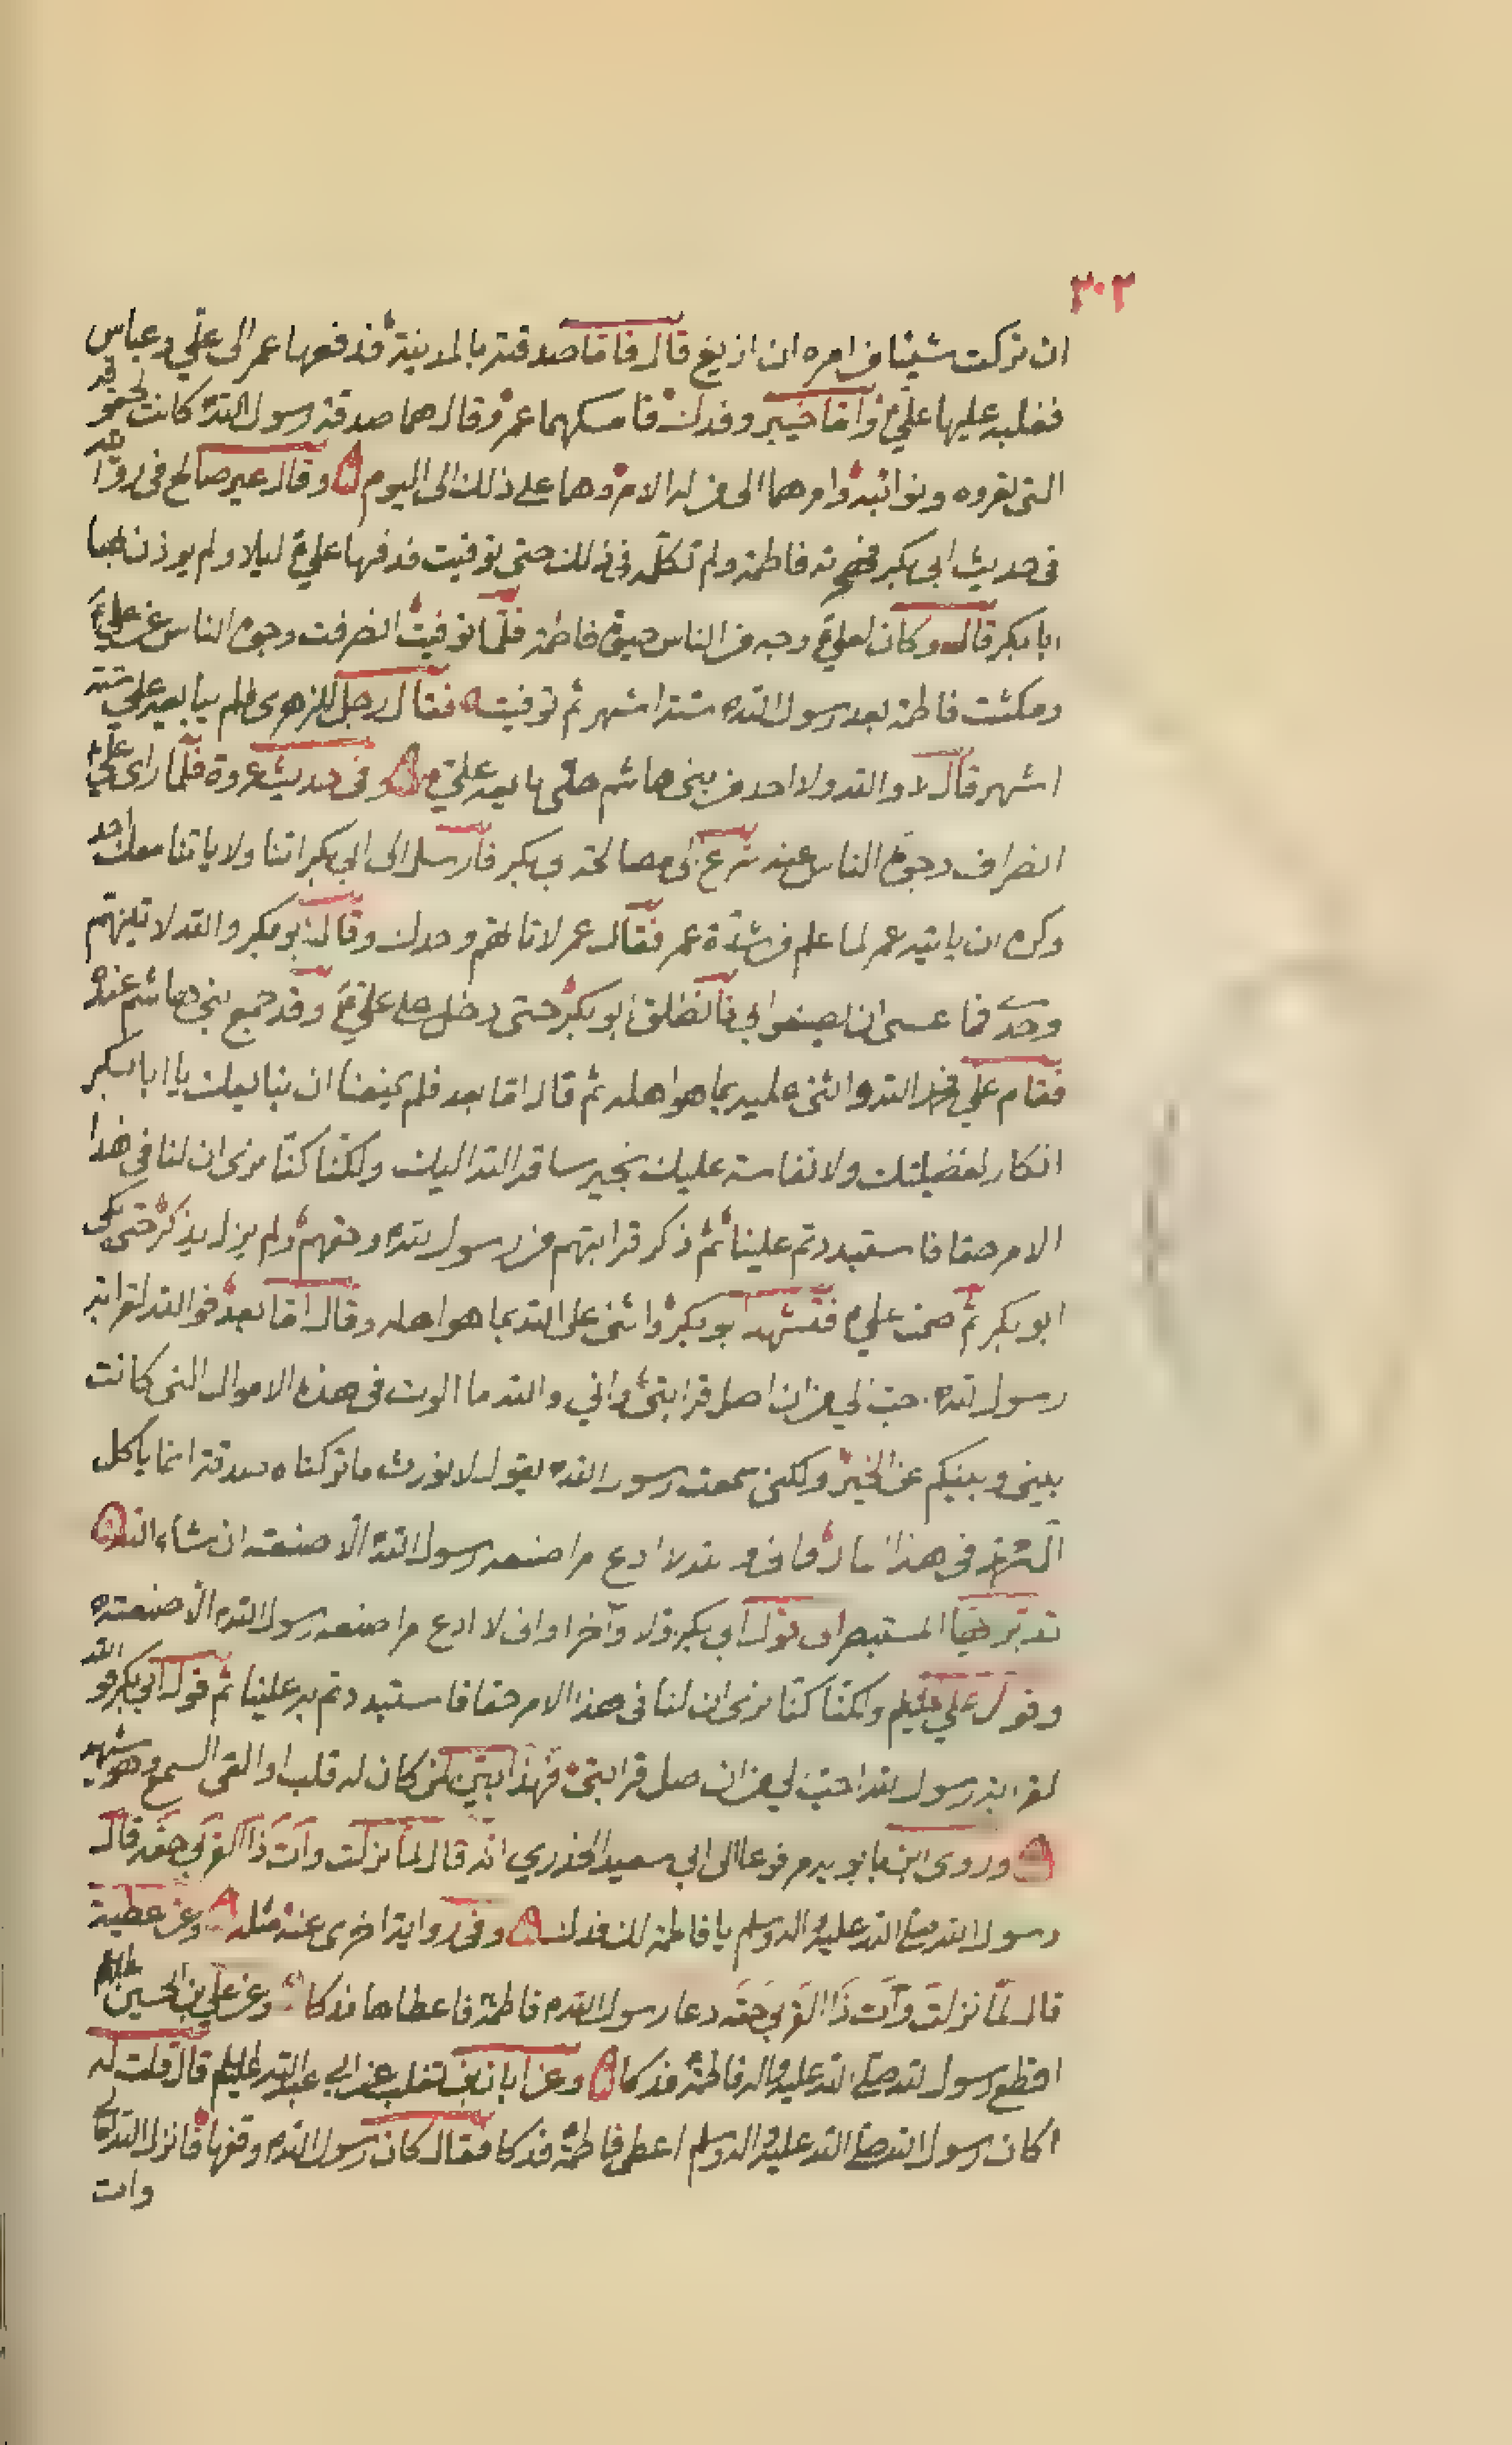 ٣٠٢
ان تركت شيئا من امره ان ازيغ قال فاما صدقته بالمدينة فدفعها عمر الى علي وعباس
فغلبه عليها علي واما خيبر وفدك فامسكهما عمر وقال هما صدقة رسول الله كانت لحقوقه
التى تعروه ونوائبه وامرهما الى من له الامر وهما على ذلك الى اليوم وقال غير صالح فى روايته
فى حديث ابى بكر فهجرته فاطمة ولم تكلمه فى ذلك حتى توفيت فدفنها علي ع ليلا ولم يوذن بها
ابا بكر قال وكان لعلي ع وجه من الناس حيوة فاطمة فلما توفيت انصرفت وجوه الناس عن علي ع
ومكثت فاطمة بعد رسول الله ستة اشهر ثم توفيت فقال رجل للزهرى فلم يبايعه علي ستة
اشهر قال لا والله ولا احد من بنى هاشم حتى بايعه علي وفى حديث عروة فلما راى علي
انصراف وجوه الناس عنه ضرع الى مصالحة ابى بكر فارسل الى ابى بكر اتنا ولا ياتنا معك احد
وكره ان ياتيه عمر لما علم من شدة عمر فقال عمر لا تاتهم وحدك وقال ابو بكر والله لاتينهم
وحدى ما عسى ان يصنعوا بى فانطلق ابو بكر حتى دخل على علي ع وقد جمع بنى هاشم عنده
فقام علي فحمد الله واثنى عليه بما هو اهله ثم قال اما بعد فلم يمنعنا ان نبايعك يا ابا بكر
انكار لفضيلتك ولا نفاسة عليك بخير ساقه الله اليك ولكنا كنا نرى ان لنا فى هذا
الامر حقا فاستبددتم علينا ثم ذكر قرابتهم من رسول الله وحقهم ولم يزل يذكر حتى بكى
ابو بكر ثم صمت علي فتشهد ابو بكر واثنى على الله بما هو اهله وقال اما بعد فوالله لقرابة
رسول الله احب الي من ان اصل قرابتى واني والله ما الوت فى هذه الاموال التى كانت
بينى وبينكم عن الخير ولكنى سمعت رسول الله يقول لا نورث ما تركناه صدقة انما ياكل
آل محمد فى هذا المال وانى والله لا ادع امرا صنعه رسول الله الا صنعته ان شاء الله
تدبر ايها المستبصر الى قول ابى بكر اولا وآخرا وانى لا ادع امرا صنعه رسول الله الا صنعته
وقول علي عليلم ولكنا كنا نرى ان لنا فى هذا الامر حقا فاستبددتم به علينا ثم قول ابى بكر فو الله
لقرابة رسول الله احب الي من ان اصل قرابتى فهذا بين لمن كان له قلب او القى السمع وهو شهيد
وروى ابن بابويه مرفوعا الى ابى سعيد الخدري انه قال لما نزلت وآت ذا القربى حقه قال
رسول الله صلى الله عليه واله وسلم يا فاطمة لك فدك وفى رواية اخرى عنه مثله وعن عطية
قال لما نزلت وآت ذا القربى حقه دعا رسول الله فاطمة فاعطاها فدكا وعن علي بن الحسين عليلم
اقطع رسول الله صلى الله عليه واله فاطمة فدكا وعن ابان بن تغلب عن ابى عبد الله عليلم قال قلت له
اكان رسول الله صلى الله عليه واله وسلم اعطى فاطمة فدكا فقال كان رسول الله وقفها فانزل الله تعالى
وات